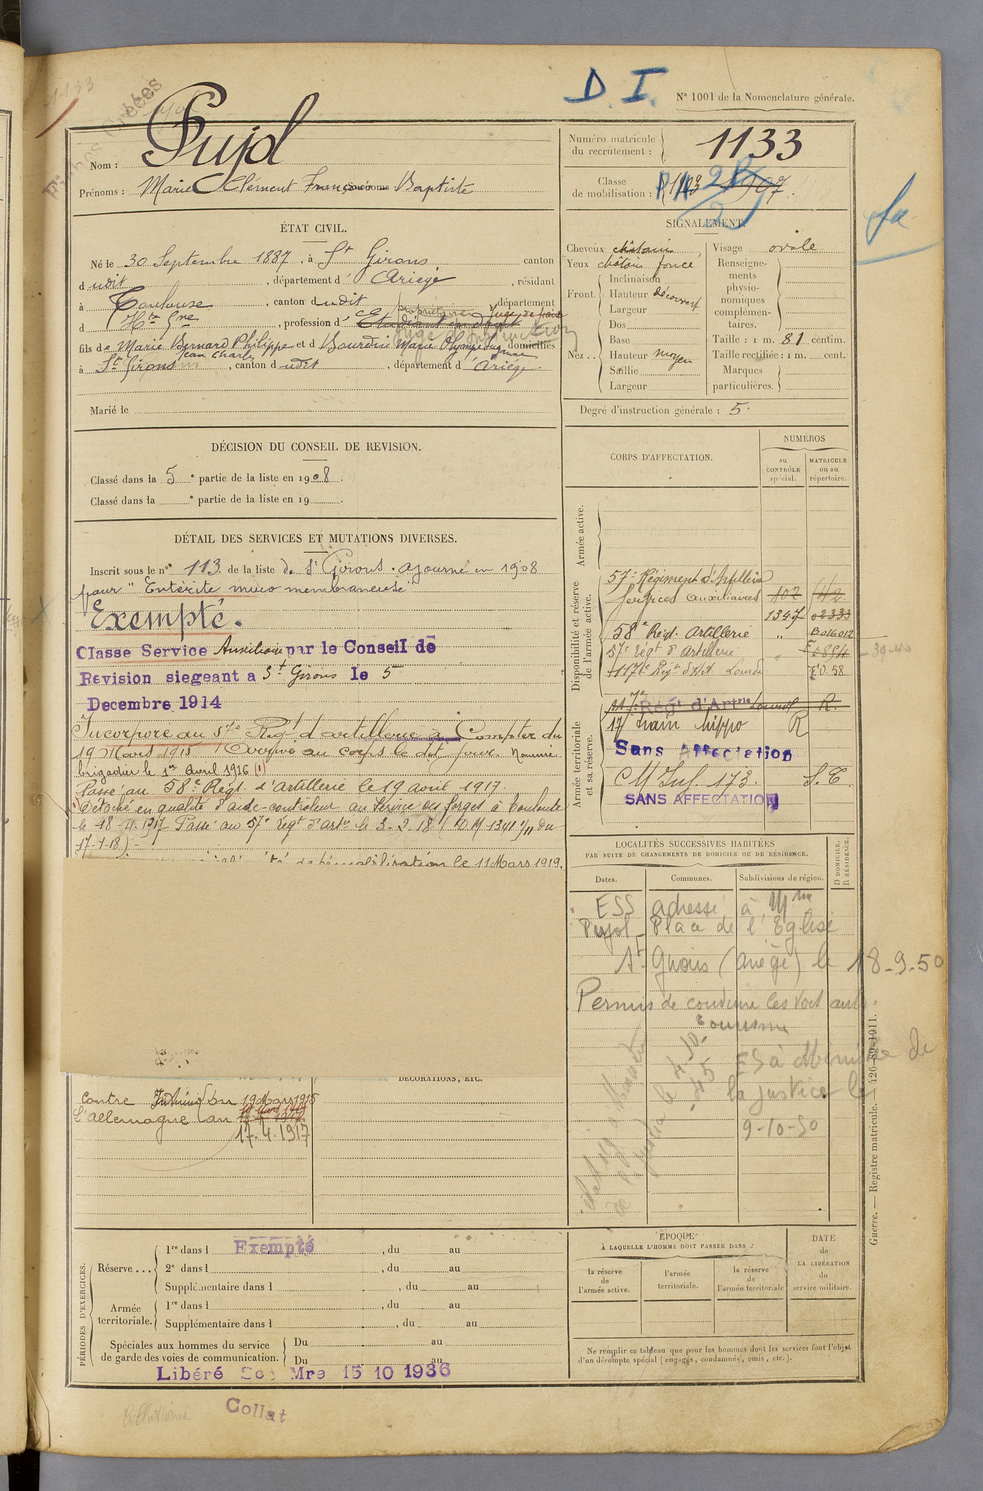 D. I.
N° 1001 de la Nomenclature générale.
Nom : Pujol
Prénoms : Marie Clément François Baptiste
Numéro matricule du recrutement : 1133
Classe de mobilisation :
ÉTAT CIVIL.
Né le 30 Septembre 1887, à St Girons, canton
dudit, département d'Ariège, résidant
à Toulouse, canton dudit, département
d Hte Gne, profession d'Etudiant en droit
propriétaire Juge de paix
Juge d'Instruction
fils de Marie Bernard Philippe et d Bourdin Marie Olympe domiciliés
Jean Charles
à St Girons, canton dudit, département d'Ariège.
Marié le
SIGNALEMENT.
Cheveux chatain
Yeux chatain foncé
Front. Inclinaison
Hauteur découvert
Largeur
Nez. Dos
Base
Hauteur moyen
Saillie
Largeur
Visage ovale
Renseignements physionomiques complémentaires.
Taille : 1 m. 81 centim.
Taille rectifiée : 1 m. cent.
Marques particulières.
Degré d'instruction générale : 5.
DÉCISION DU CONSEIL DE REVISION.
Classé dans la 5e partie de la liste en 1908.
Classé dans la e partie de la liste en 19
DÉTAIL DES SERVICES ET MUTATIONS DIVERSES.
Inscrit sous le n° 113 de la liste de St Girons. ajourné en 1908
pour "Entérite muco membraneuse"
Exempté.
Classe Service Auxiliaire par le Conseil de
Revision siegeant a St Girons le 5
Decembre 1914
Incorporé au 57e Régt d'artillerie à Compter du
19 Mars 1915 Arrivé au corps le dit jour. Nommé
brigadier le 1er Avril 1916 (1)
Passé au 58e Régt d'artillerie le 19 avril 1917
(1) Détaché en qualité d'aide-controleur au Service des forges à Toulouse
le 18-4-1917 Passé au 57e régt d'artie le 3-2-18 (D M 1341 1/11 du
17-1-18)
de démobilisation le 11 Mars 1919.
CORPS D'AFFECTATION.
NUMÉROS
au CONTRÔLE spécial.
MATRICULE ou au répertoire.
Armée active.
Disponibilité et réserve de l'armée active.
57e Régiment d'Artillerie
Services auxiliaires 107
1347 02333
58e Régt Artillerie " B016012
57e régt d'artillerie
39-40
117e Régt d'Art Lourde
Armée territoriale et sa réserve.
117e Régt d'Artrie Lourde R.
17 train hippo R
Sans Affectation
C M Inf. 173. S. C.
SANS AFFECTATION
LOCALITÉS SUCCESSIVES HABITÉES
PAR SUITE DE CHANGEMENTS DE DOMICILE OU DE RÉSIDENCE.
Dates.
Communes.
Subdivisions de région.
D DOMICILE. R RÉSIDENCE.
ESS adressé à Mme
Pujol - Place de l'Eglise
St Girons (Ariège) le 18-9-50
Permis de conduire les voit auto.
Tourisme
ES à Ministre de
la justice le
9-10-50
DÉCORATIONS, ETC.
contre
l'Allemagne
du 19 Mars 1915
au
17.4.1917
PÉRIODES D'EXERCICES.
Réserve...
1re dans l Exempté, du au
2e dans l , du au
Supplémentaire dans l , du au
Armée territoriale.
1re dans l , du au
Supplémentaire dans l , du au
Spéciales aux hommes du service de garde des voies de communication.
Du au
Du au
Libéré Mre 15 10 1936
Collat
ÉPOQUE
À LAQUELLE L'HOMME DOIT PASSER DANS :
la réserve de l'armée active.
l'armée territoriale.
la réserve de l'armée territoriale
DATE de LA LIBÉRATION du service militaire.
Ne remplir ce tableau que pour les hommes dont les services font l'objet
d'un décompte spécial (engagés, condamnés, omis, etc.).
Guerre. — Registre matricule. — 426-89-1911.